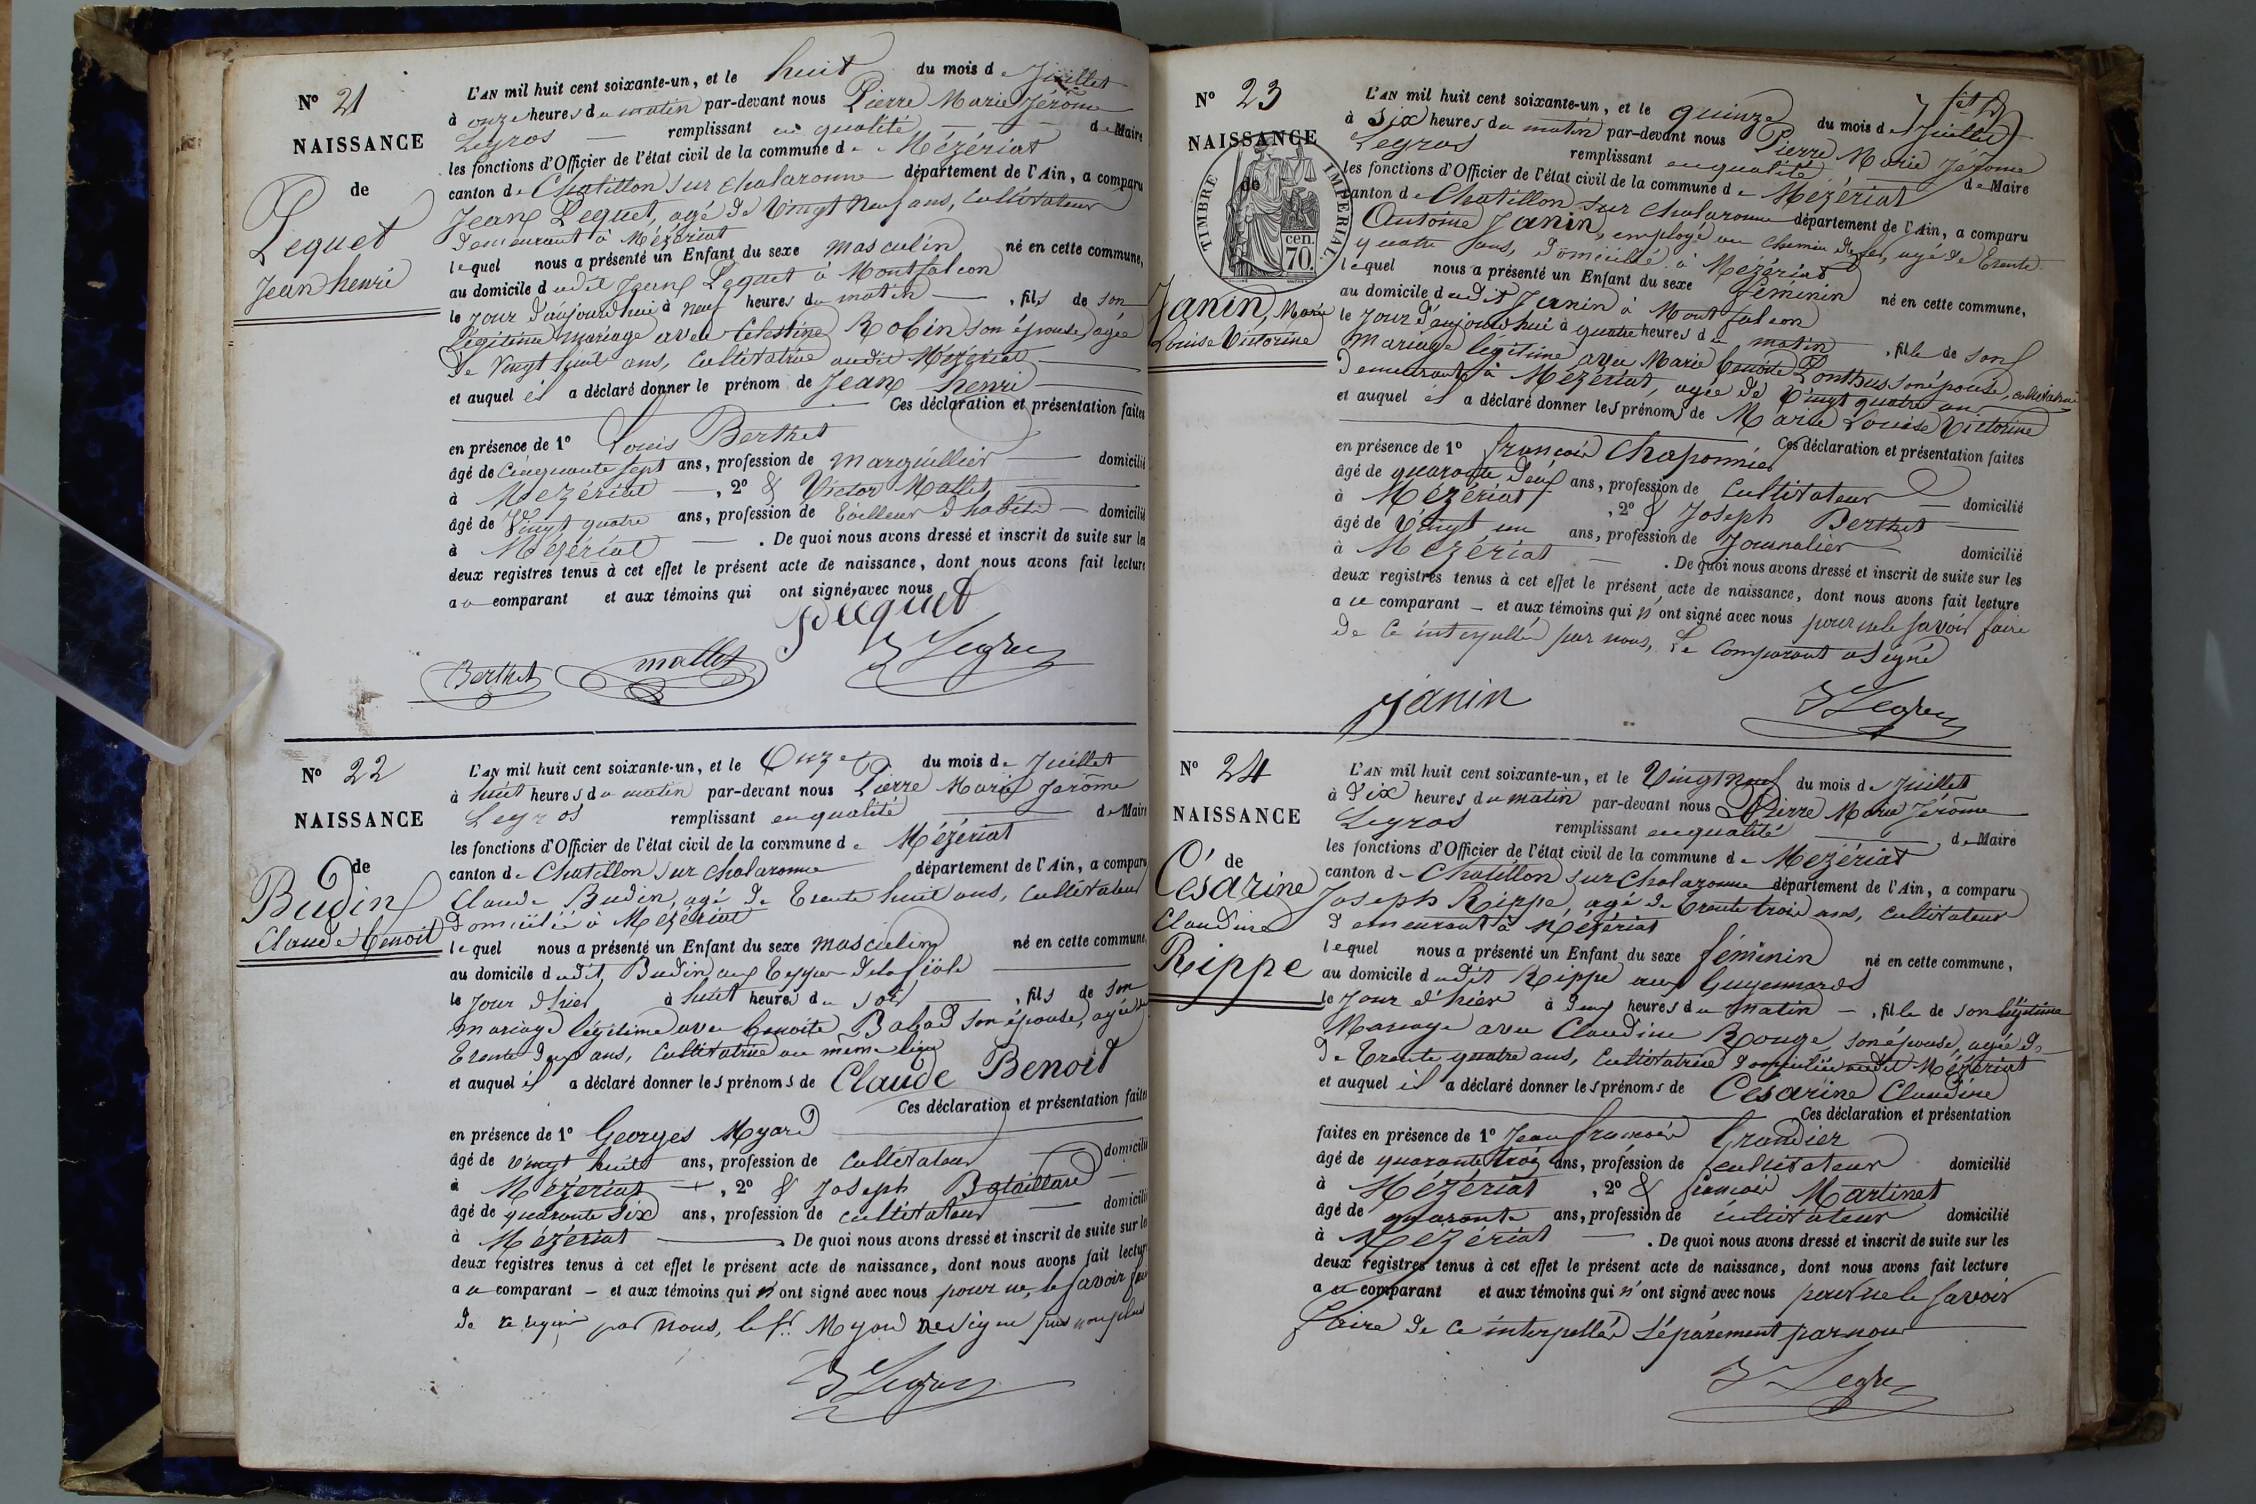 N° 21
NAISSANCE
de
Pequet
Jean henri
L'AN mil huit cent soixante-un, et le huit du mois de Juillet
à onze heures du matin par-devant nous Pierre Marie Jérôme
Legros remplissant en qualité de Maire
les fonctions d'Officier de l'état civil de la commune de Mézériat
canton de Chatillon sur chalaronne département de l'Ain, a comparu
Jean Pequet, agé de Vingt Neuf ans, Cultivateur
demeurant à Mézériat
lequel nous a présenté un Enfant du sexe masculin né en cette commune,
au domicile dudit Jean Pequet à Montfalcon
le jour d'aujourd'hui à neuf heures du matin , fils de son
légitime mariage avec Célestine Robin son épouse, agée
de vingt huit ans, cultivatrice audit Mézériat
et auquel il a déclaré donner le prénom de Jean henri
Ces déclaration et présentation faites
en présence de 1° Louis Berthet
âgé de Cinquante sept ans, profession de marguillier domicilié
à Mézériat , 2° & Victor Mallet
âgé de Vingt quatre ans, profession de tailleur d'habits domicilié
à Mézériat . De quoi nous avons dressé et inscrit de suite sur les
deux registres tenus à cet effet le présent acte de naissance, dont nous avons fait lecture
au comparant et aux témoins qui ont signé, avec nous
Pequet
Berthet mallet Legros
N° 22
NAISSANCE
de
Budin
Claude Benoit
L'AN mil huit cent soixante-un, et le Onze du mois de Juillet
à huit heures du matin par-devant nous Pierre Marie Jérôme
Legros remplissant en qualité de Maire
les fonctions d'Officier de l'état civil de la commune de Mézériat
canton de Chatillon sur chalaronne département de l'Ain, a comparu
Claude Budin, agé de trente huit ans, Cultivateur
domicilié à Mézériat
lequel nous a présenté un Enfant du sexe masculin né en cette commune,
au domicile dudit Budin aux
le jour d'hier à huit heures du soir , fils de son
mariage légitime avec Benoite son épouse, agée de
trente deux ans, Cultivatrice au même lieu
et auquel il a déclaré donner les prénoms de Claude Benoit
Ces déclaration et présentation faites
en présence de 1° Georges Myard
âgé de vingt huit ans, profession de Cultivateur domicilié
à Mézériat , 2° & Joseph Bataillard
âgé de quarante six ans, profession de cultivateur domicilié
à Mézériat . De quoi nous avons dressé et inscrit de suite sur les
deux registres tenus à cet effet le présent acte de naissance, dont nous avons fait lecture
au comparant et aux témoins qui n'ont signé avec nous pour ne le savoir faire
de ce requis par nous, le Sr Myard ne signe pas non plus
Legros
N° 23
NAISSANCE
de
TIMBRE IMPERIAL
cen.
70.
Janin, Marie
Louise Victorine
L'AN mil huit cent soixante-un, et le quinze du mois de Juillet
à six heures du matin par-devant nous Pierre Marie Jérôme
Legros remplissant en qualité de Maire
les fonctions d'Officier de l'état civil de la commune de Mézériat
canton de Chatillon sur chalaronne département de l'Ain, a comparu
Antoine Janin, employé au chemin de fer, agé de trente
quatre ans, domicilié à Mézériat
lequel nous a présenté un Enfant du sexe féminin né en cette commune,
au domicile dudit Janin à Montfalcon
le jour d'aujourd'hui à quatre heures du matin , fille de son
mariage légitime avec Marie Benoite Ponthus son épouse, cultivatrice
demeurante à Mézériat, agée de Vingt quatre ans
et auquel il a déclaré donner les prénoms de Marie Louise Victorine
Ces déclaration et présentation faites
en présence de 1° françois Chaponnier
âgé de quarante deux ans, profession de Cultivateur domicilié
à Mézériat , 2° & Joseph Berthet
âgé de Vingt un ans, profession de Journalier domicilié
à Mézériat . De quoi nous avons dressé et inscrit de suite sur les
deux registres tenus à cet effet le présent acte de naissance, dont nous avons fait lecture
a ce comparant et aux témoins qui n'ont signé avec nous pour ne le savoir faire
de ce interpellés par nous, le Comparant a signé
Janin Legros
N° 24
NAISSANCE
de
Césarine
Claudine
Rippe
L'AN mil huit cent soixante-un, et le Vingt neuf du mois de Juillet
à dix heures du matin par-devant nous Pierre Marie Jérôme
Legros remplissant en qualité de Maire
les fonctions d'Officier de l'état civil de la commune de Mézériat
canton de Chatillon sur chalaronne département de l'Ain, a comparu
Joseph Rippe, agé de trente trois ans, Cultivateur
demeurant à Mézériat
lequel nous a présenté un Enfant du sexe féminin né en cette commune,
au domicile dudit Rippe aux Guyennards
le jour d'hier à deux heures du matin , fille de son légitime
Mariage avec Claudine Rouge, son épouse, agée de
trente quatre ans, Cultivatrice domiciliée audit Mézériat
et auquel il a déclaré donner les prénoms de Césarine Claudine
Ces déclaration et présentation
faites en présence de 1° Jean françois Grandier
âgé de quarante trois ans, profession de cultivateur domicilié
à Mézériat , 2° & françois Martinet
âgé de quarante ans, profession de cultivateur domicilié
à Mézériat . De quoi nous avons dressé et inscrit de suite sur les
deux registres tenus à cet effet le présent acte de naissance, dont nous avons fait lecture
au comparant et aux témoins qui n'ont signé avec nous pour ne le savoir
faire de ce interpellés séparément par nous
Legros